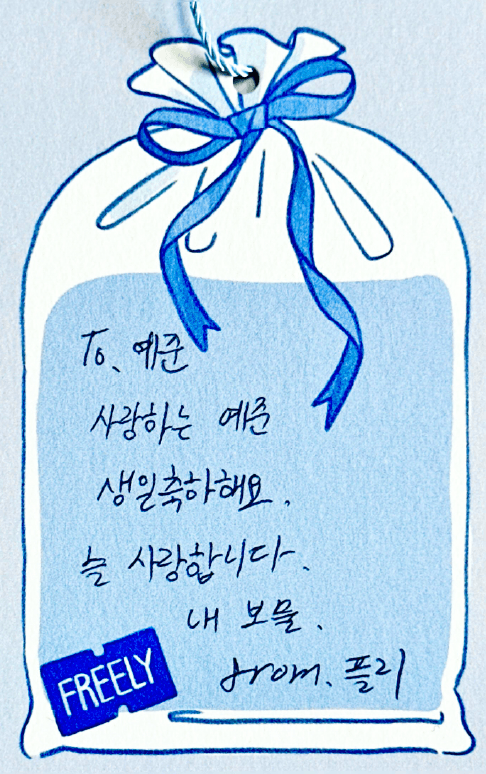 To. 예준
사랑하는 예준
생일축하해요.
늘 사랑합니다.
내 보물.
from. 플리
FREELY